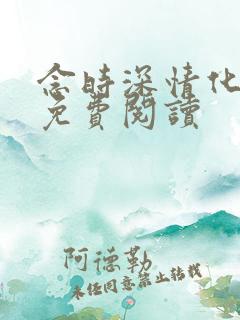 念時深情化
免費閱讀
阿德勒
未经同意禁止转载